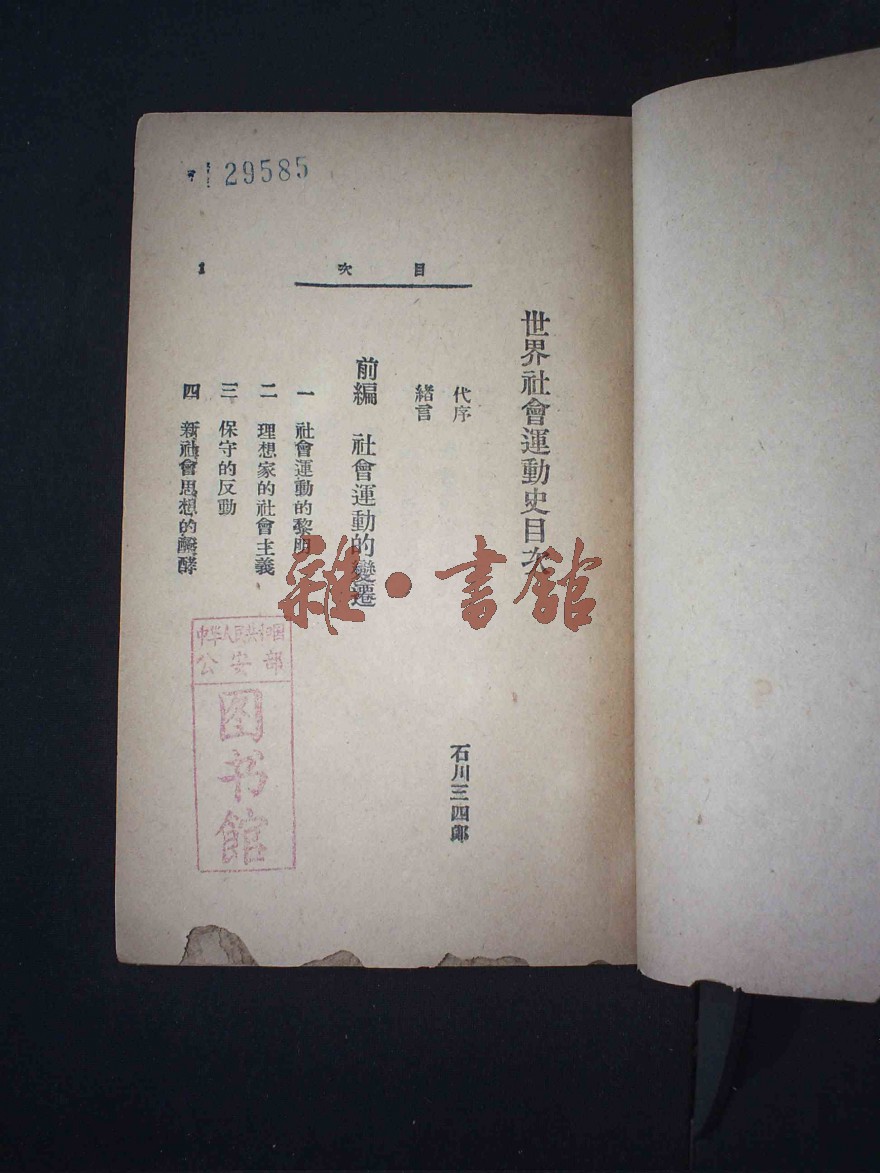 29585
目次
1
世界社會運動史目次
代序 石川三四郎
緒言
前編 社會運動的變遷
一 社會運動的黎明
二 理想家的社會主義
三 保守的反動
四 新社會思想的醱酵
雜·書館
中华人民共和国
公安部
图书馆